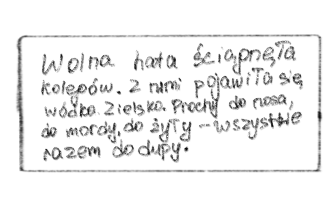 Wolna hata ściągnęła
kolegów. Z nimi pojawiła się
wódka. Zielsko. Prochy do nosa,
do mordy, do żyły – wszystkie
razem do dupy.